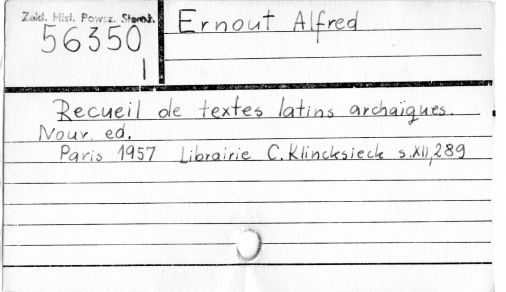 Zakł. Hist. Powsz. Staroż.
56350
I
Ernout Alfred
Recueil de textes latins archaïques.
Nouv. ed.
Paris 1957 Librairie C. Klincksieck s. XII, 289